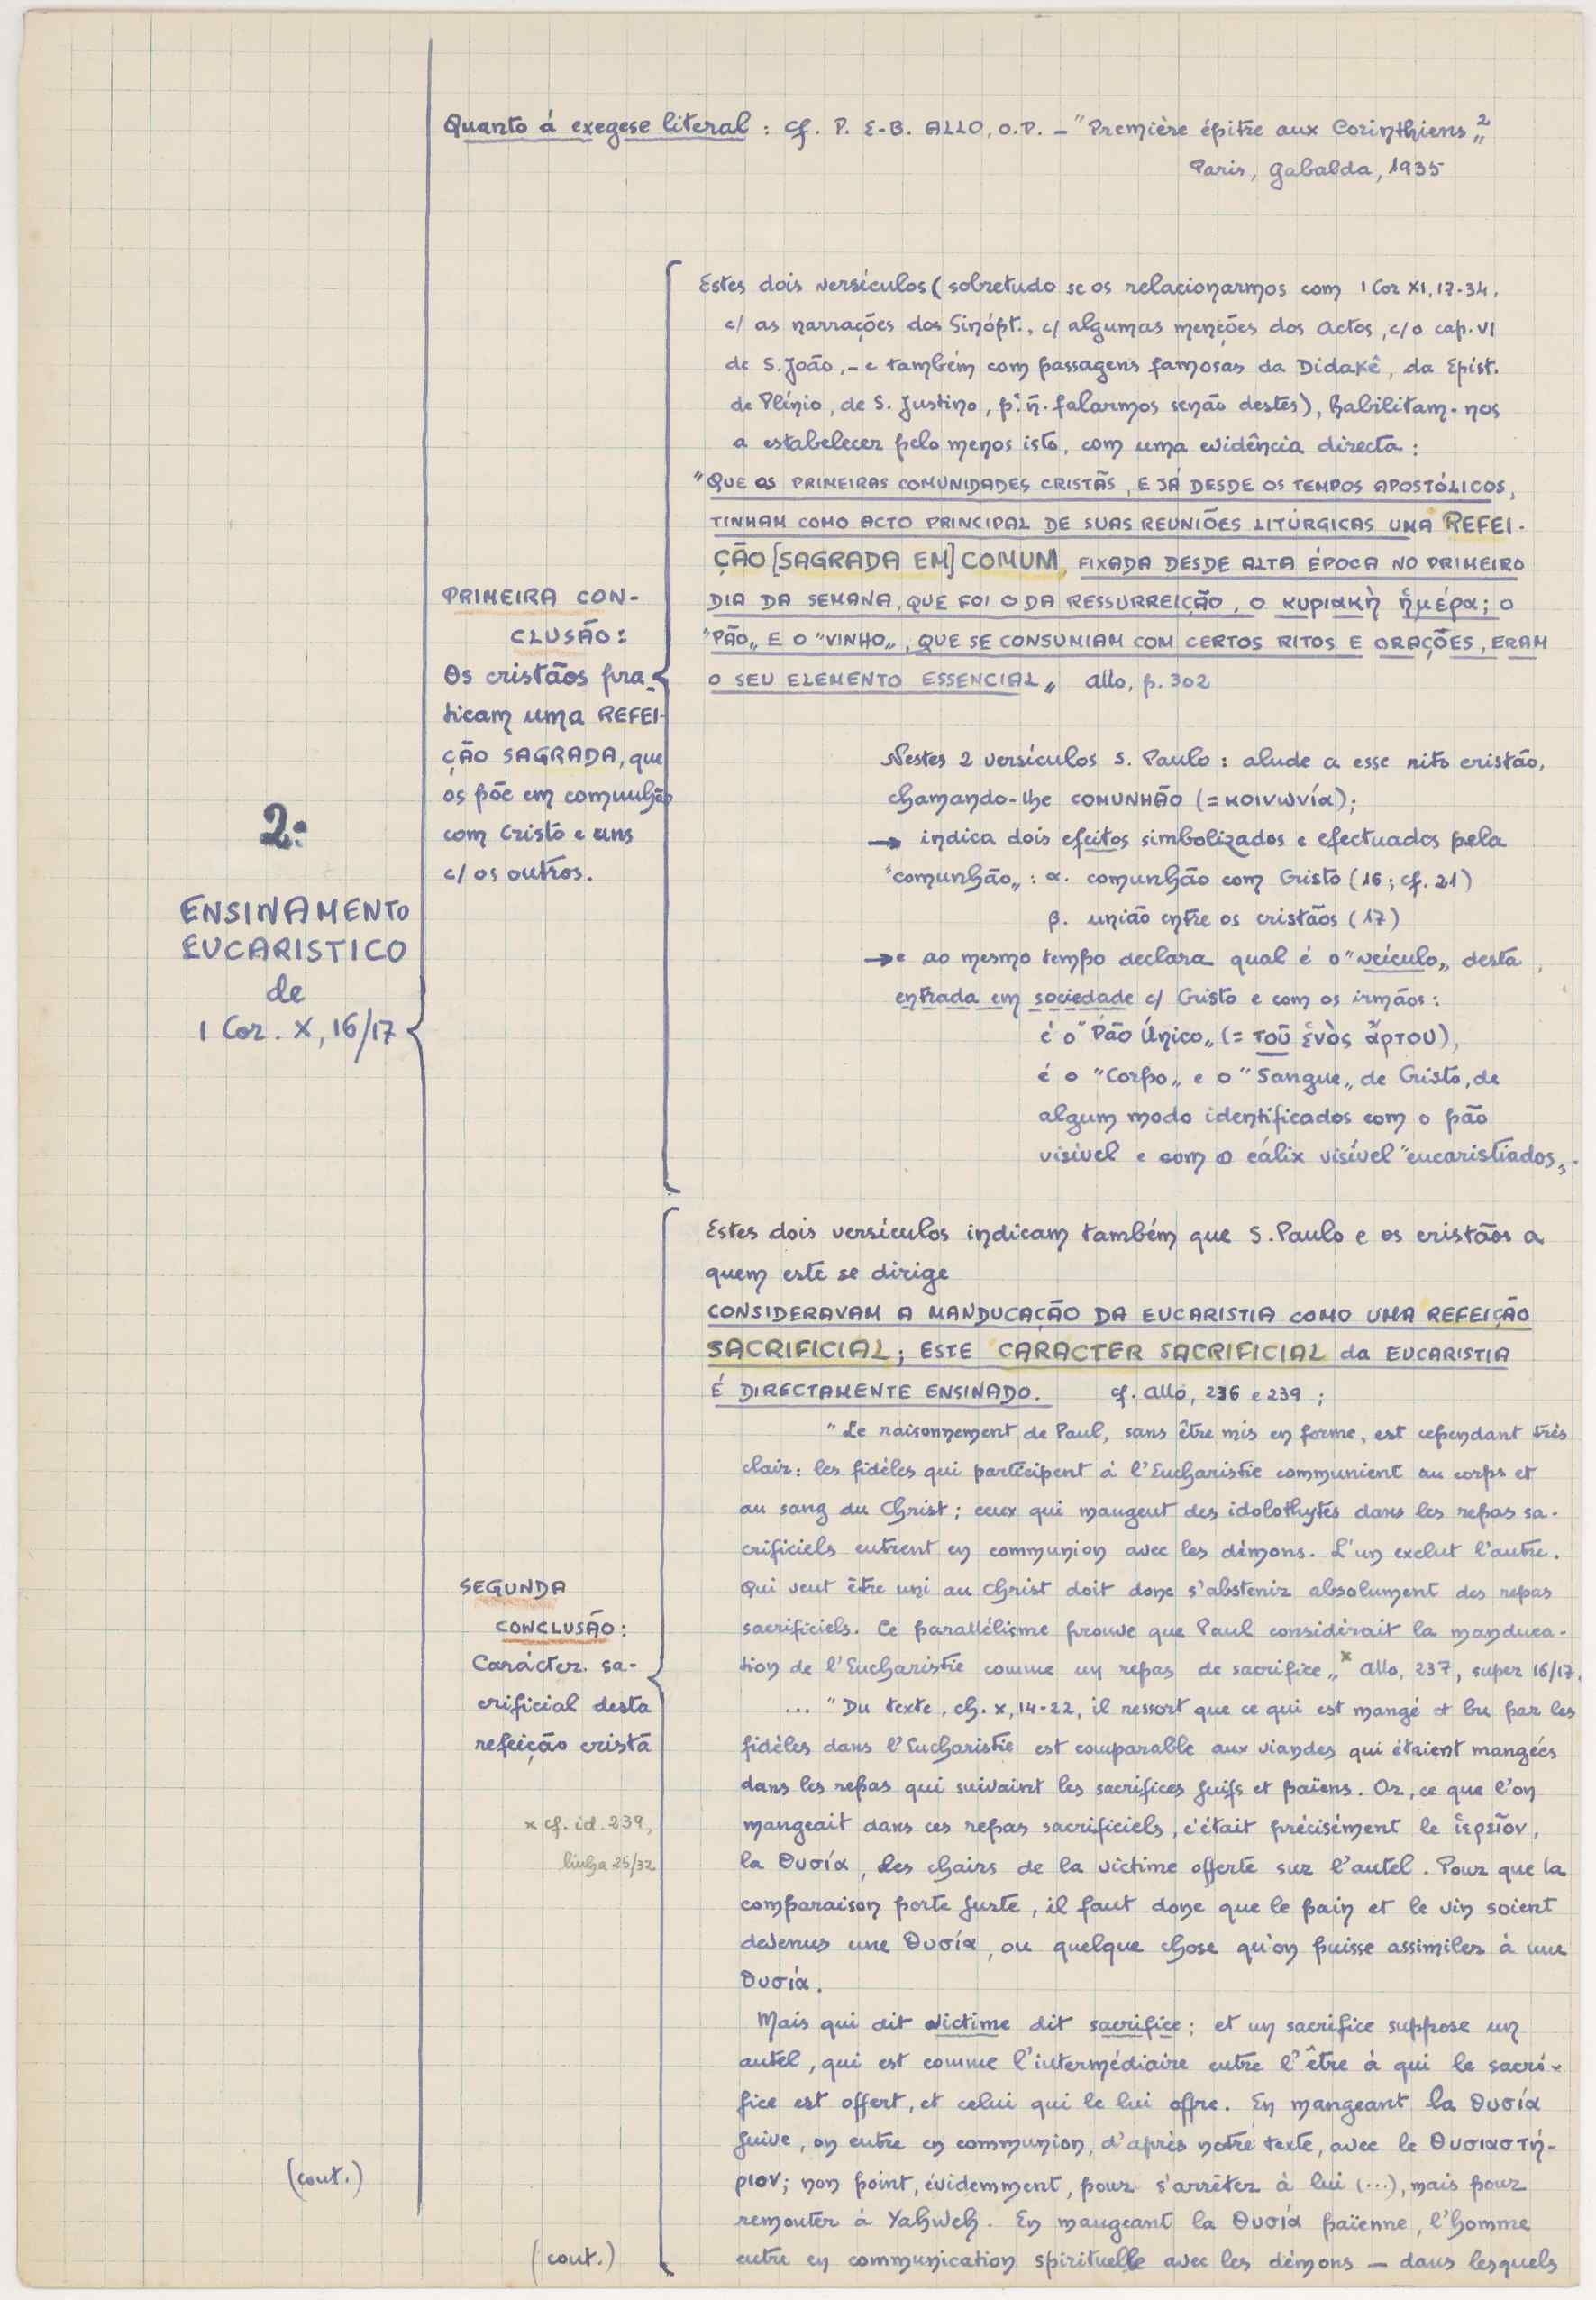 Quanto á exegese literal : Cf. P. E-B. ALLO, O.P. – "Première épitre aux Corinthiens„²
Paris, Gabalda, 1935
2:
ENSINAMENTO
EUCARISTICO
de
1 Cor. X, 16/17
(cont.)
PRIMEIRA CON-
CLUSÃO:
Os cristãos pra-
ticam uma REFEI-
ÇÃO SAGRADA, que
os põe em comunhão
com Cristo e uns
c/ os outros.
Estes dois versículos (sobretudo se os relacionarmos com 1 Cor XI, 17-34,
c/ as narrações dos Sinópt., c/ algumas menções dos Actos, c/o cap. VI
de S. João, – e também com passagens famosas da Didakê, da Epíst.
de Plínio, de S. Justino, p.ª ñ. falarmos senão destes), habilitam-nos
a estabelecer pelo menos isto, com uma evidência directa :
"QUE AS PRIMEIRAS COMUNIDADES CRISTÃS, E JÁ DESDE OS TEMPOS APOSTÓLICOS,
TINHAM COMO ACTO PRINCIPAL DE SUAS REUNIÕES LITÚRGICAS UMA REFEI-
ÇÃO [SAGRADA EM] COMUM, FIXADA DESDE ALTA ÉPOCA NO PRIMEIRO
DIA DA SEMANA, QUE FOI O DA RESSURREIÇÃO, O κυριακὴ ἡμέρα; O
"PÃO„ E O "VINHO„, QUE SE CONSUMIAM COM CERTOS RITOS E ORAÇÕES, ERAM
O SEU ELEMENTO ESSENCIAL„ Allo, p. 302
Nestes 2 versículos S. Paulo : alude a esse rito cristão,
chamando-lhe COMUNHÃO (= κοινωνία);
→ indica dois efeitos simbolizados e efectuados pela
"comunhão„ : α. comunhão com Cristo (16; cf. 21)
β. união entre os cristãos (17)
→ e ao mesmo tempo declara qual é o "veículo„ desta
entrada em sociedade c/ Cristo e com os irmãos :
é o "Pão Único„ (= τοῦ ἑνὸς ἄρτου),
é o "Corpo„ e o "Sangue„ de Cristo, de
algum modo identificados com o pão
visível e com o cálix visível "eucaristiados„.
SEGUNDA
CONCLUSÃO :
Carácter sa-
crificial desta
refeição cristã
x cf. id. 239,
linha 25/32
(cont.)
Estes dois versículos indicam também que S. Paulo e os cristãos a
quem este se dirige
CONSIDERAVAM A MANDUCAÇÃO DA EUCARISTIA COMO UMA REFEIÇÃO
SACRIFICIAL ; ESTE CARACTER SACRIFICIAL da EUCARISTIA
É DIRECTAMENTE ENSINADO. cf. Allo, 236 e 239 ;
"Le raisonnement de Paul, sans être mis en forme, est cependant très
clair : les fidèles qui participent à l'Eucharistie communient au corps et
au sang du Christ ; ceux qui mangent des idolothytes dans les repas sa-
crificiels entrent en communion avec les démons. L'un exclut l'autre.
Qui veut être uni au Christ doit donc s'abstenir absolument des repas
sacrificiels. Ce parallélisme prouve que Paul considérait la manduca-
tion de l'Eucharistie comme un repas de sacrifice„ x Allo, 237, super 16/17.
... "Du texte, ch. x, 14-22, il ressort que ce qui est mangé et bu par les
fidèles dans l'Eucharistie est comparable aux viandes qui étaient mangées
dans les repas qui suivaint les sacrifices juifs et païens. Or, ce que l'on
mangeait dans ces repas sacrificiels, c'était précisément le ἱερεῖον,
la θυσία, les chairs de la victime offerte sur l'autel. Pour que la
comparaison porte juste, il faut donc que le pain et le vin soient
devenus une θυσία, ou quelque chose qu'on puisse assimiler à une
θυσία.
Mais qui dit victime dit sacrifice ; et un sacrifice suppose un
autel, qui est comme l'intermédiaire entre l'être à qui le sacri-
fice est offert, et celui qui le lui offre. En mangeant la θυσία
juive, on entre en communion, d'après notre texte, avec le θυσιαστή-
ριον; non point, évidemment, pour s'arrêter à lui (...), mais pour
remonter à Yahweh. En mangeant la θυσία païenne, l'homme
entre en communication spirituelle avec les démons – dans lesquels